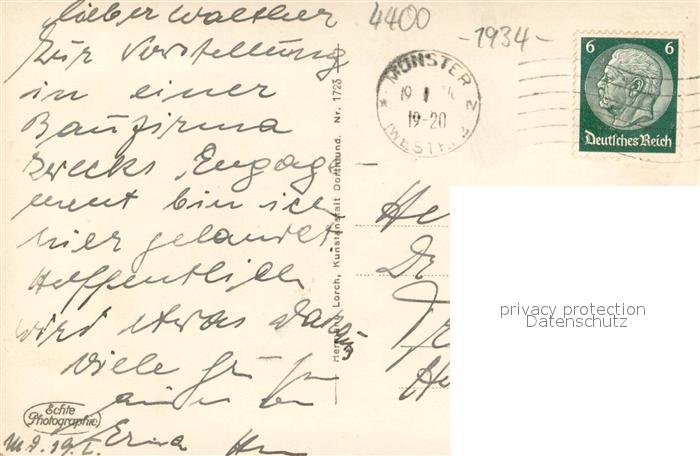 lieber Walther
zur Vorstellung
in einer
Baufirma
zwecks Engage
ment bin ich
hier gelandet
Hoffentlich
wird etwas daraus
viele
Erna
M d. 19. I.
Echte
Photographie
4400
-1934-
MÜNSTER
19 1
19-20
(WESTF.)
2
6 6
Deutsches Reich
Lorch, Kunstanstalt Dortmund. Nr. 1723
He
Dr
privacy protection
Datenschutz